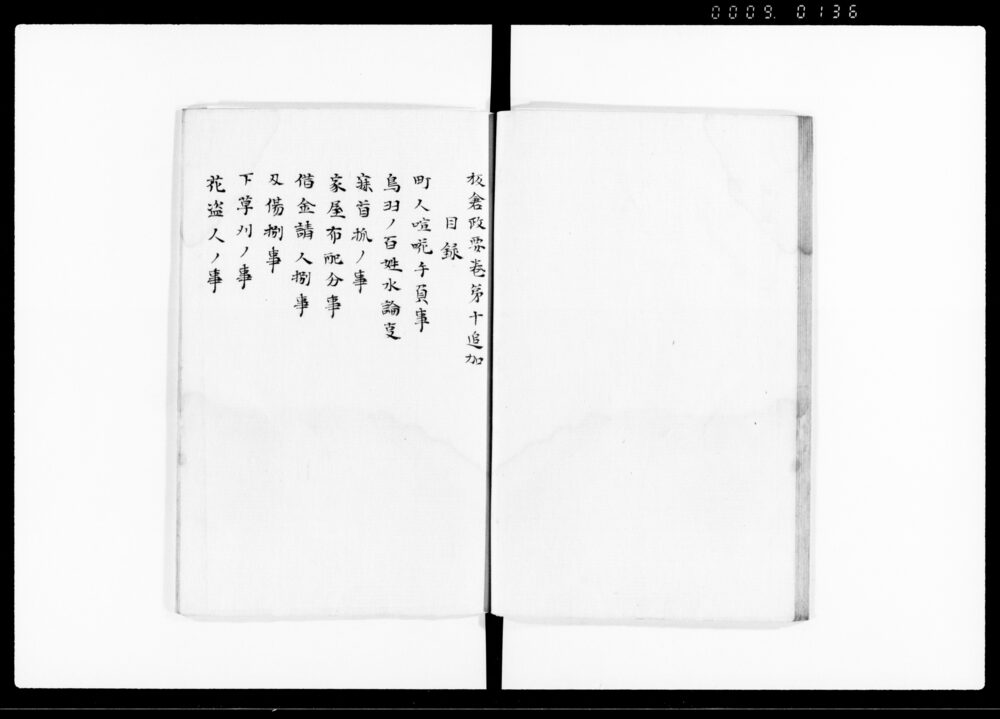 0009 0136
板倉政要巻第十追加
目録
町人喧咙手負事
鳥羽ノ百姓水論事
寐首抓ノ事
家屋布配分事
借金請人捌事
刄傷捌事
下草刈ノ事
花盗人ノ事